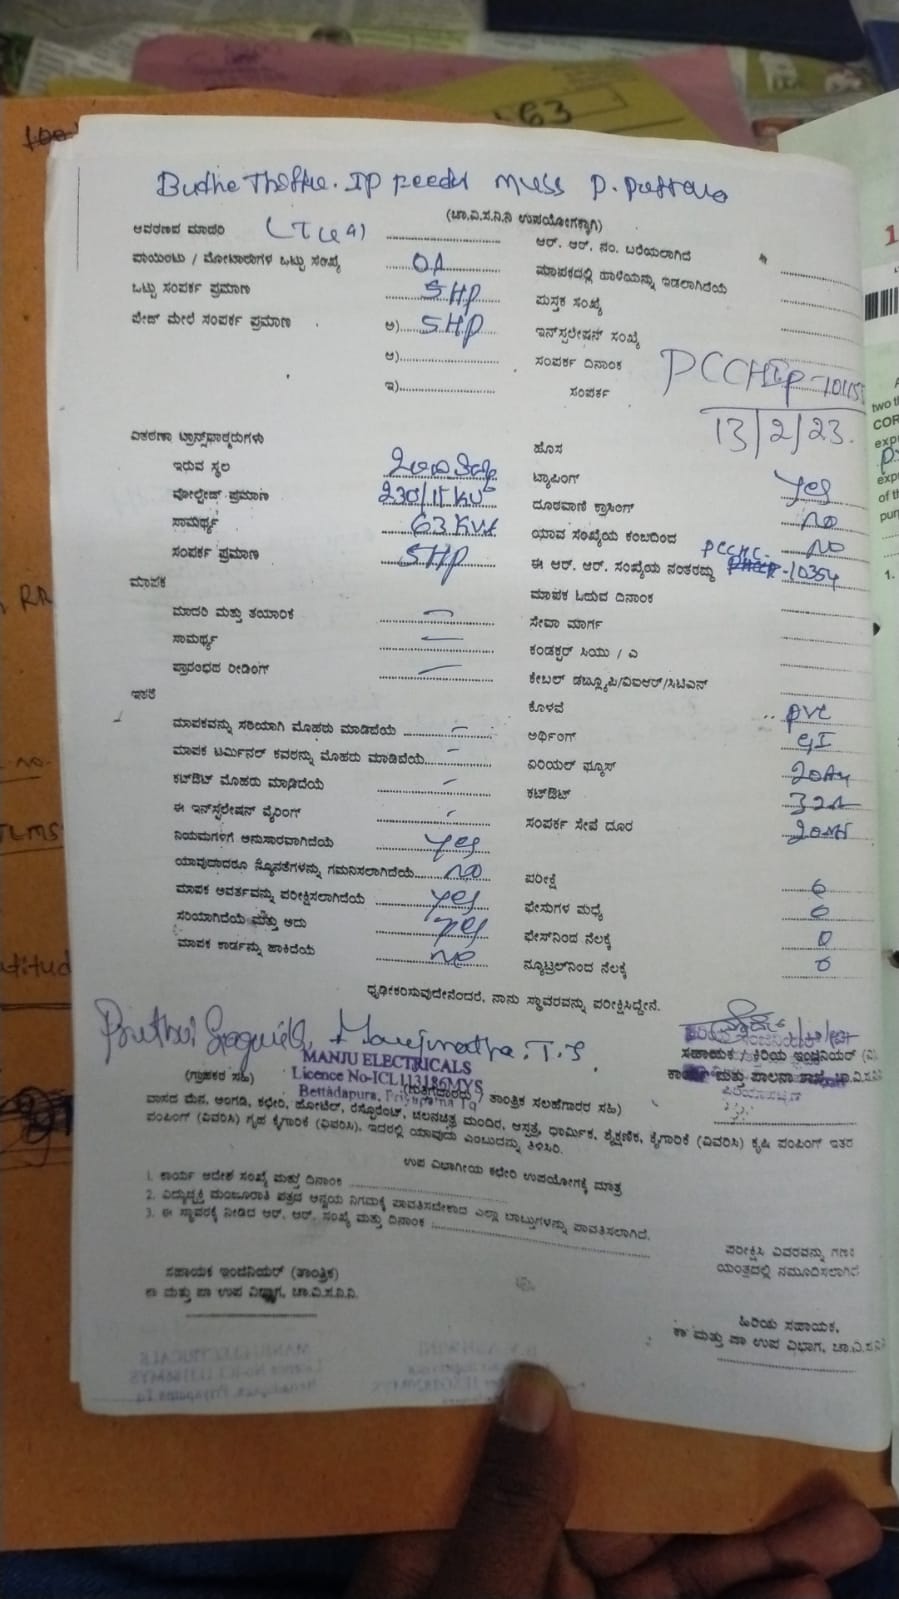 63
IP Feeder muss P.
(ಚಾ.ವಿ.ಸ.ನಿ.ನಿ ಉಪಯೋಗಕ್ಕಾಗಿ)
ಆವರಣದ ಮಾದರಿ
ಆರ್. ಆರ್. ನಂ. ಬರೆಯಲಾಗಿದೆ
ಪಾಯಿಂಟು / ಮೋಟಾರುಗಳ ಒಟ್ಟು ಸಂಖ್ಯೆ
ಮಾಪಕದಲ್ಲಿ ಹಾಳೆಯನ್ನು ಇಡಲಾಗಿದೆಯೆ
ಒಟ್ಟು ಸಂಪರ್ಕ ಪ್ರಮಾಣ 5HP
ಪುಸ್ತಕ ಸಂಖ್ಯೆ
ಪೇಜ್ ಮೇಲೆ ಸಂಪರ್ಕ ಪ್ರಮಾಣ ಅ) 5HP
ಇನ್‌ಸ್ಟಲೇಷನ್ ಸಂಖ್ಯೆ
ಆ)
ಸಂಪರ್ಕ ದಿನಾಂಕ
ಇ)
ಸಂಪರ್ಕ
13/2/23.
ವಿತರಣಾ ಟ್ರಾನ್ಸ್‌ಫಾರ್ಮರುಗಳು
ಹೊಸ
ಇರುವ ಸ್ಥಲ
ಟ್ಯಾಪಿಂಗ್ yes
ವೋಲ್ಟೇಜ್ ಪ್ರಮಾಣ
ದೂರವಾಣಿ ಕ್ರಾಸಿಂಗ್ no
ಸಾಮರ್ಥ್ಯ 63 KVA
ಯಾವ ಸಂಖ್ಯೆಯ ಕಂಬದಿಂದ no
ಸಂಪರ್ಕ ಪ್ರಮಾಣ 5HP
ಈ ಆರ್. ಆರ್. ಸಂಖ್ಯೆಯ ನಂತರದ್ದು -10354
ಮಾಪಕ
ಮಾಪಕ ಓದುವ ದಿನಾಂಕ
ಮಾದರಿ ಮತ್ತು ತಯಾರಿಕೆ
ಸೇವಾ ಮಾರ್ಗ
ಸಾಮರ್ಥ್ಯ
ಕಂಡಕ್ಟರ್ ಸಿಯು / ಎ
ಪ್ರಾರಂಭದ ರೀಡಿಂಗ್
ಕೇಬಲ್ ಡಬ್ಲ್ಯೂಪಿ/ವಿಐಆರ್/ಸಿಟಿಎಸ್
ಇತರೆ
ಕೊಳವೆ pvc
ಮಾಪಕವನ್ನು ಸರಿಯಾಗಿ ಮೊಹರು ಮಾಡಿದೆಯೆ
ಅರ್ಥಿಂಗ್ GI
ಮಾಪಕ ಟರ್ಮಿನಲ್ ಕವರನ್ನು ಮೊಹರು ಮಾಡಿದೆಯೆ
ಏರಿಯಲ್ ಫ್ಯೂಸ್
ಕಟ್‌ಔಟ್ ಮೊಹರು ಮಾಡಿದೆಯೆ
ಕಟ್‌ಔಟ್
ಈ ಇನ್‌ಸ್ಟಲೇಷನ್ ವೈರಿಂಗ್
ಸಂಪರ್ಕ ಸೇವೆ ದೂರ
ನಿಯಮಗಳಿಗೆ ಅನುಸಾರವಾಗಿದೆಯೆ yes
ಯಾವುದಾದರೂ ನ್ಯೂನತೆಗಳನ್ನು ಗಮನಿಸಲಾಗಿದೆಯೆ no
ಪರೀಕ್ಷೆ 0
ಮಾಪಕ ಅವರ್ತವನ್ನು ಪರೀಕ್ಷಿಸಲಾಗಿದೆಯೆ yes
ಫೇಸುಗಳ ಮಧ್ಯೆ 0
ಸರಿಯಾಗಿದೆಯೆ ಮತ್ತು ಅದು yes
ಫೇಸ್‌ನಿಂದ ನೆಲಕ್ಕೆ 0
ಮಾಪಕ ಕಾರ್ಡನ್ನು ಹಾಕಿದೆಯೆ no
ನ್ಯೂಟ್ರಲ್‌ನಿಂದ ನೆಲಕ್ಕೆ 0
ಧೃಢೀಕರಿಸುವುದೇನೆಂದರೆ, ನಾನು ಸ್ಥಾವರವನ್ನು ಪರೀಕ್ಷಿಸಿದ್ದೇನೆ.
Manjunatha. T. S
MANJU ELECTRICALS
Licence No-ICL113186MYS
Bettadapura, Priyapatna Tq
ಸಹಾಯಕ / ಕಿರಿಯ ಇಂಜಿನಿಯರ್ (ವಿ)
(ಗ್ರಾಹಕರ ಸಹಿ)
(ಗುತ್ತಿಗೆದಾರರು / ತಾಂತ್ರಿಕ ಸಲಹೆಗಾರರ ಸಹಿ)
ಕಾರ್ಯ ಮತ್ತು ಪಾಲನಾ ಶಾಖೆ, ಚಾ.ವಿ.ಸ.ನಿ.ನಿ
ವಾಸದ ಮನೆ, ಅಂಗಡಿ, ಕಛೇರಿ, ಹೋಟೆಲ್, ರೆಸ್ಟೊರೆಂಟ್, ಚಲನಚಿತ್ರ ಮಂದಿರ, ಆಸ್ಪತ್ರೆ, ಧಾರ್ಮಿಕ, ಶೈಕ್ಷಣಿಕ, ಕೈಗಾರಿಕೆ (ವಿವರಿಸಿ) ಕೃಷಿ ಪಂಪಿಂಗ್ ಇತರ
ಪಂಪಿಂಗ್ (ವಿವರಿಸಿ) ಗೃಹ ಕೈಗಾರಿಕೆ (ವಿವರಿಸಿ), ಇದರಲ್ಲಿ ಯಾವುದು ಎಂಬುದನ್ನು ತಿಳಿಸಿರಿ.
ಉಪ ವಿಭಾಗೀಯ ಕಛೇರಿ ಉಪಯೋಗಕ್ಕೆ ಮಾತ್ರ
1. ಕಾರ್ಯ ಆದೇಶ ಸಂಖ್ಯೆ ಮತ್ತು ದಿನಾಂಕ
2. ವಿದ್ಯುಚ್ಛಕ್ತಿ ಮಂಜೂರಾತಿ ಪತ್ರದ ಅನ್ವಯ ನಿಗಮಕ್ಕೆ ಪಾವತಿಸಬೇಕಾದ ಎಲ್ಲಾ ಬಾಬ್ತುಗಳನ್ನು ಪಾವತಿಸಲಾಗಿದೆ.
3. ಈ ಸ್ಥಾವರಕ್ಕೆ ನೀಡಿದ ಆರ್. ಆರ್. ಸಂಖ್ಯೆ ಮತ್ತು ದಿನಾಂಕ :
ಪರೀಕ್ಷಿಸಿ ವಿವರವನ್ನು ಗಣಕ
ಯಂತ್ರದಲ್ಲಿ ನಮೂದಿಸಲಾಗಿದೆ
ಸಹಾಯಕ ಇಂಜಿನಿಯರ್ (ತಾಂತ್ರಿಕ)
ಕಾ ಮತ್ತು ಪಾ ಉಪ ವಿಭಾಗ, ಚಾ.ವಿ.ಸ.ನಿ.ನಿ.
ಹಿರಿಯ ಸಹಾಯಕ,
ಕಾ ಮತ್ತು ಪಾ ಉಪ ವಿಭಾಗ, ಚಾ.ವಿ.ಸ.ನಿ.ನಿ